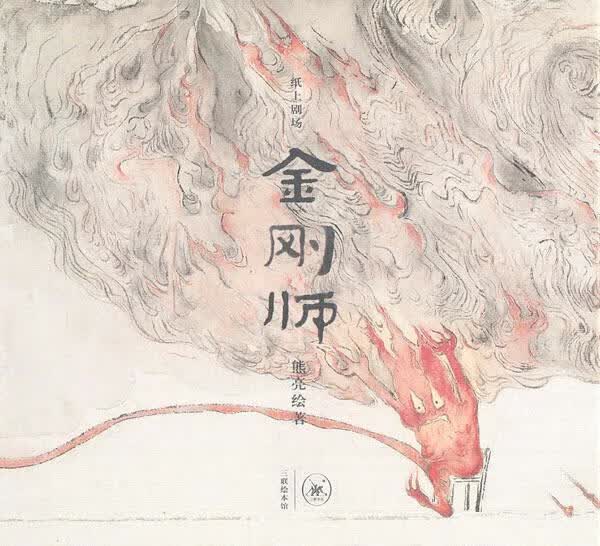 纸上剧场
金刚师
熊亮绘著
三联绘本馆